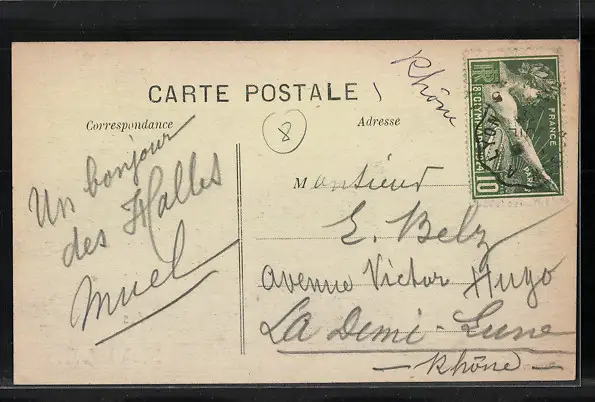 CARTE POSTALE
Rhône
Correspondance
8
Adresse
Un bonjour
des Halles
Muel
Monsieur
E. Belz
avenue Victor Hugo
La Demi-Lune
Rhône
RF
FRANCE
PARIS
10